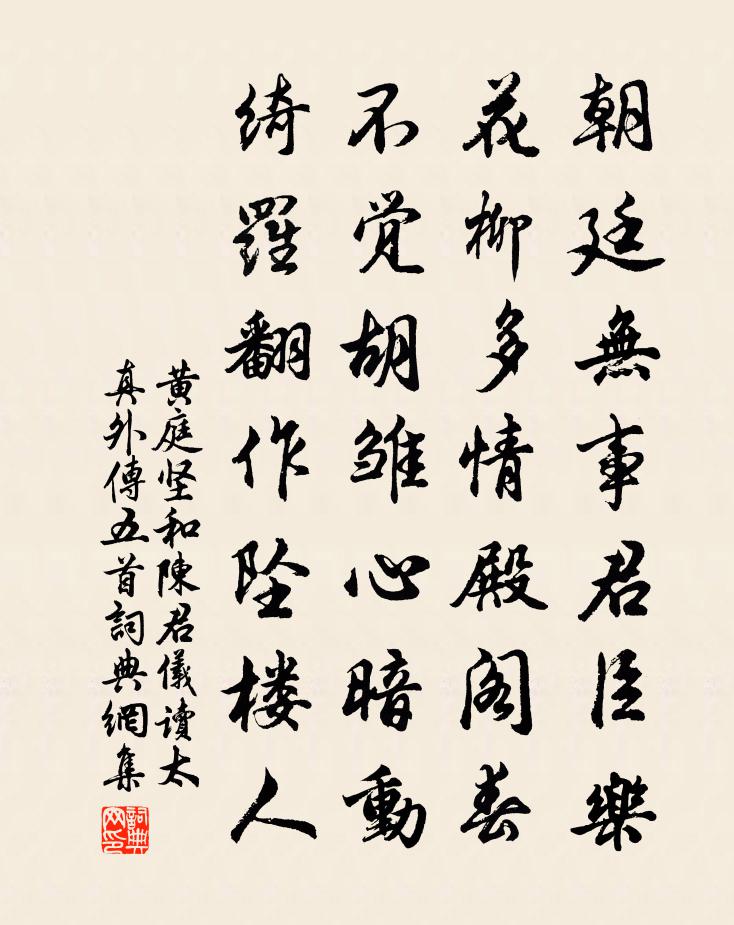 朝廷無事君臣樂
花柳多情殿阁春
不觉胡雏心暗動
绮羅翻作坠楼人
黄庭坚和陳君儀讀太
真外傳五首詞典網集
詞典网印